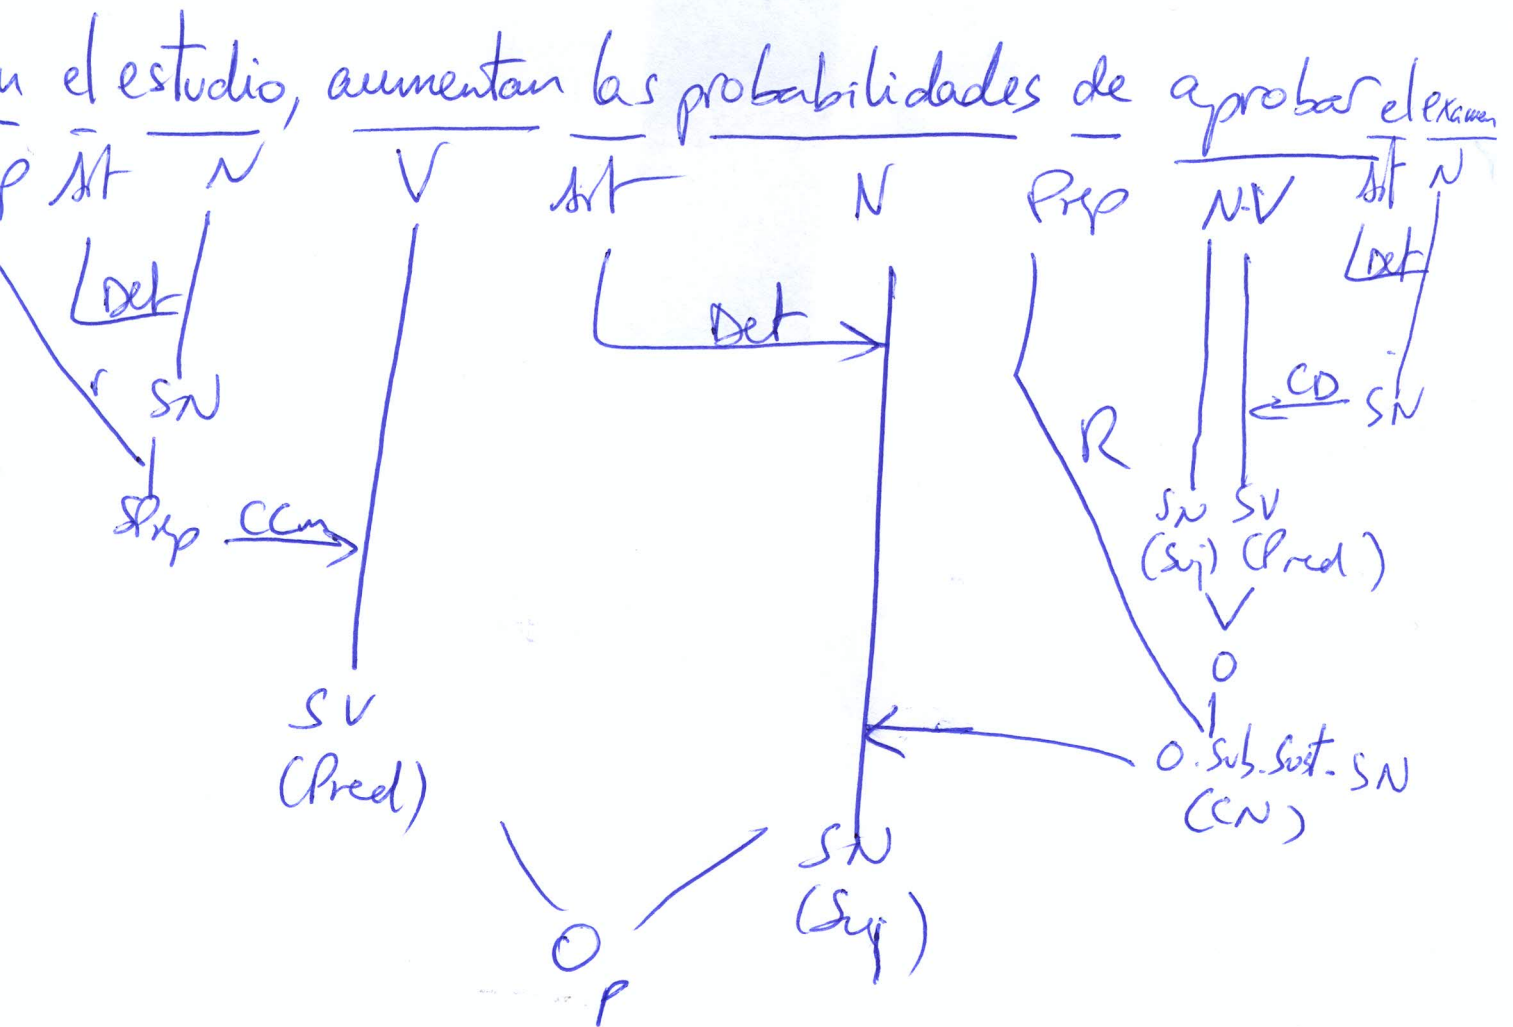 n el estudio, aumentan las probabilidades de aprobar el examen
P Art N V Art N Prep N-V Art N
Det Det Det
r SN R CD SN
SPrep CCm SN SV
(Suj) (Pred)
O
SV O.Sub.Sust-SN
(Pred) (CN)
SN
(Suj)
O
P